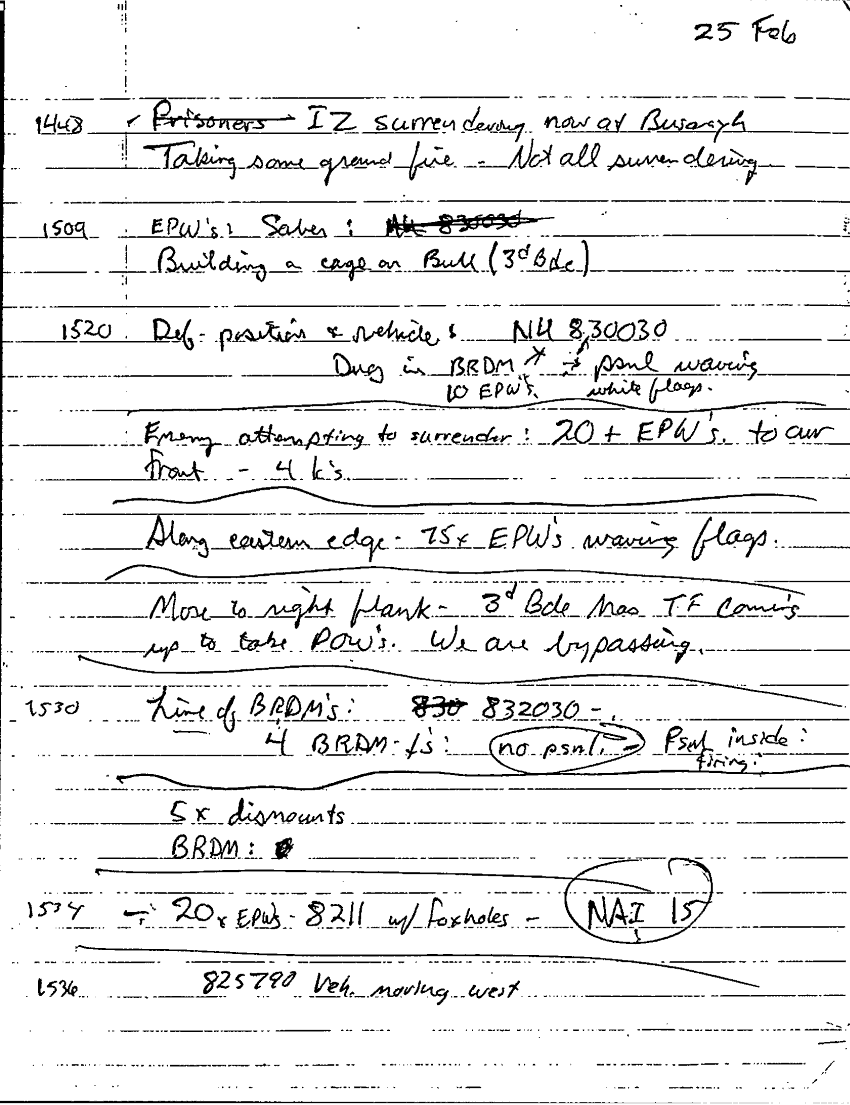 25 Feb
1448 ✓ Prisoners IZ surrendering now at Busayyh
Taking some ground fire - Not all surrendering
1509 EPW's: Saber: NU 830030
Building a cage on Bull (3d Bde)
1520 Def- position & vehicle: NU 830030
Dug in BRDM psnl waving
10 EPW's. white flags.
Enemy attempting to surrender: 20+ EPW's. to our
front - 4 k's
Along eastern edge - 75x EPW's waving flags.
Move to right flank - 3d Bde has TF coming
up to take POW's. We are bypassing.
1530 Line of BRDM's: 830 832030 -
4 BRDM-t's: no psnl. - Psnl inside:
firing:
5x dismounts
BRDM:
1534 - 20x EPW's - 8211 w/ foxholes - NAI 15
1536 825790 Veh. moving west